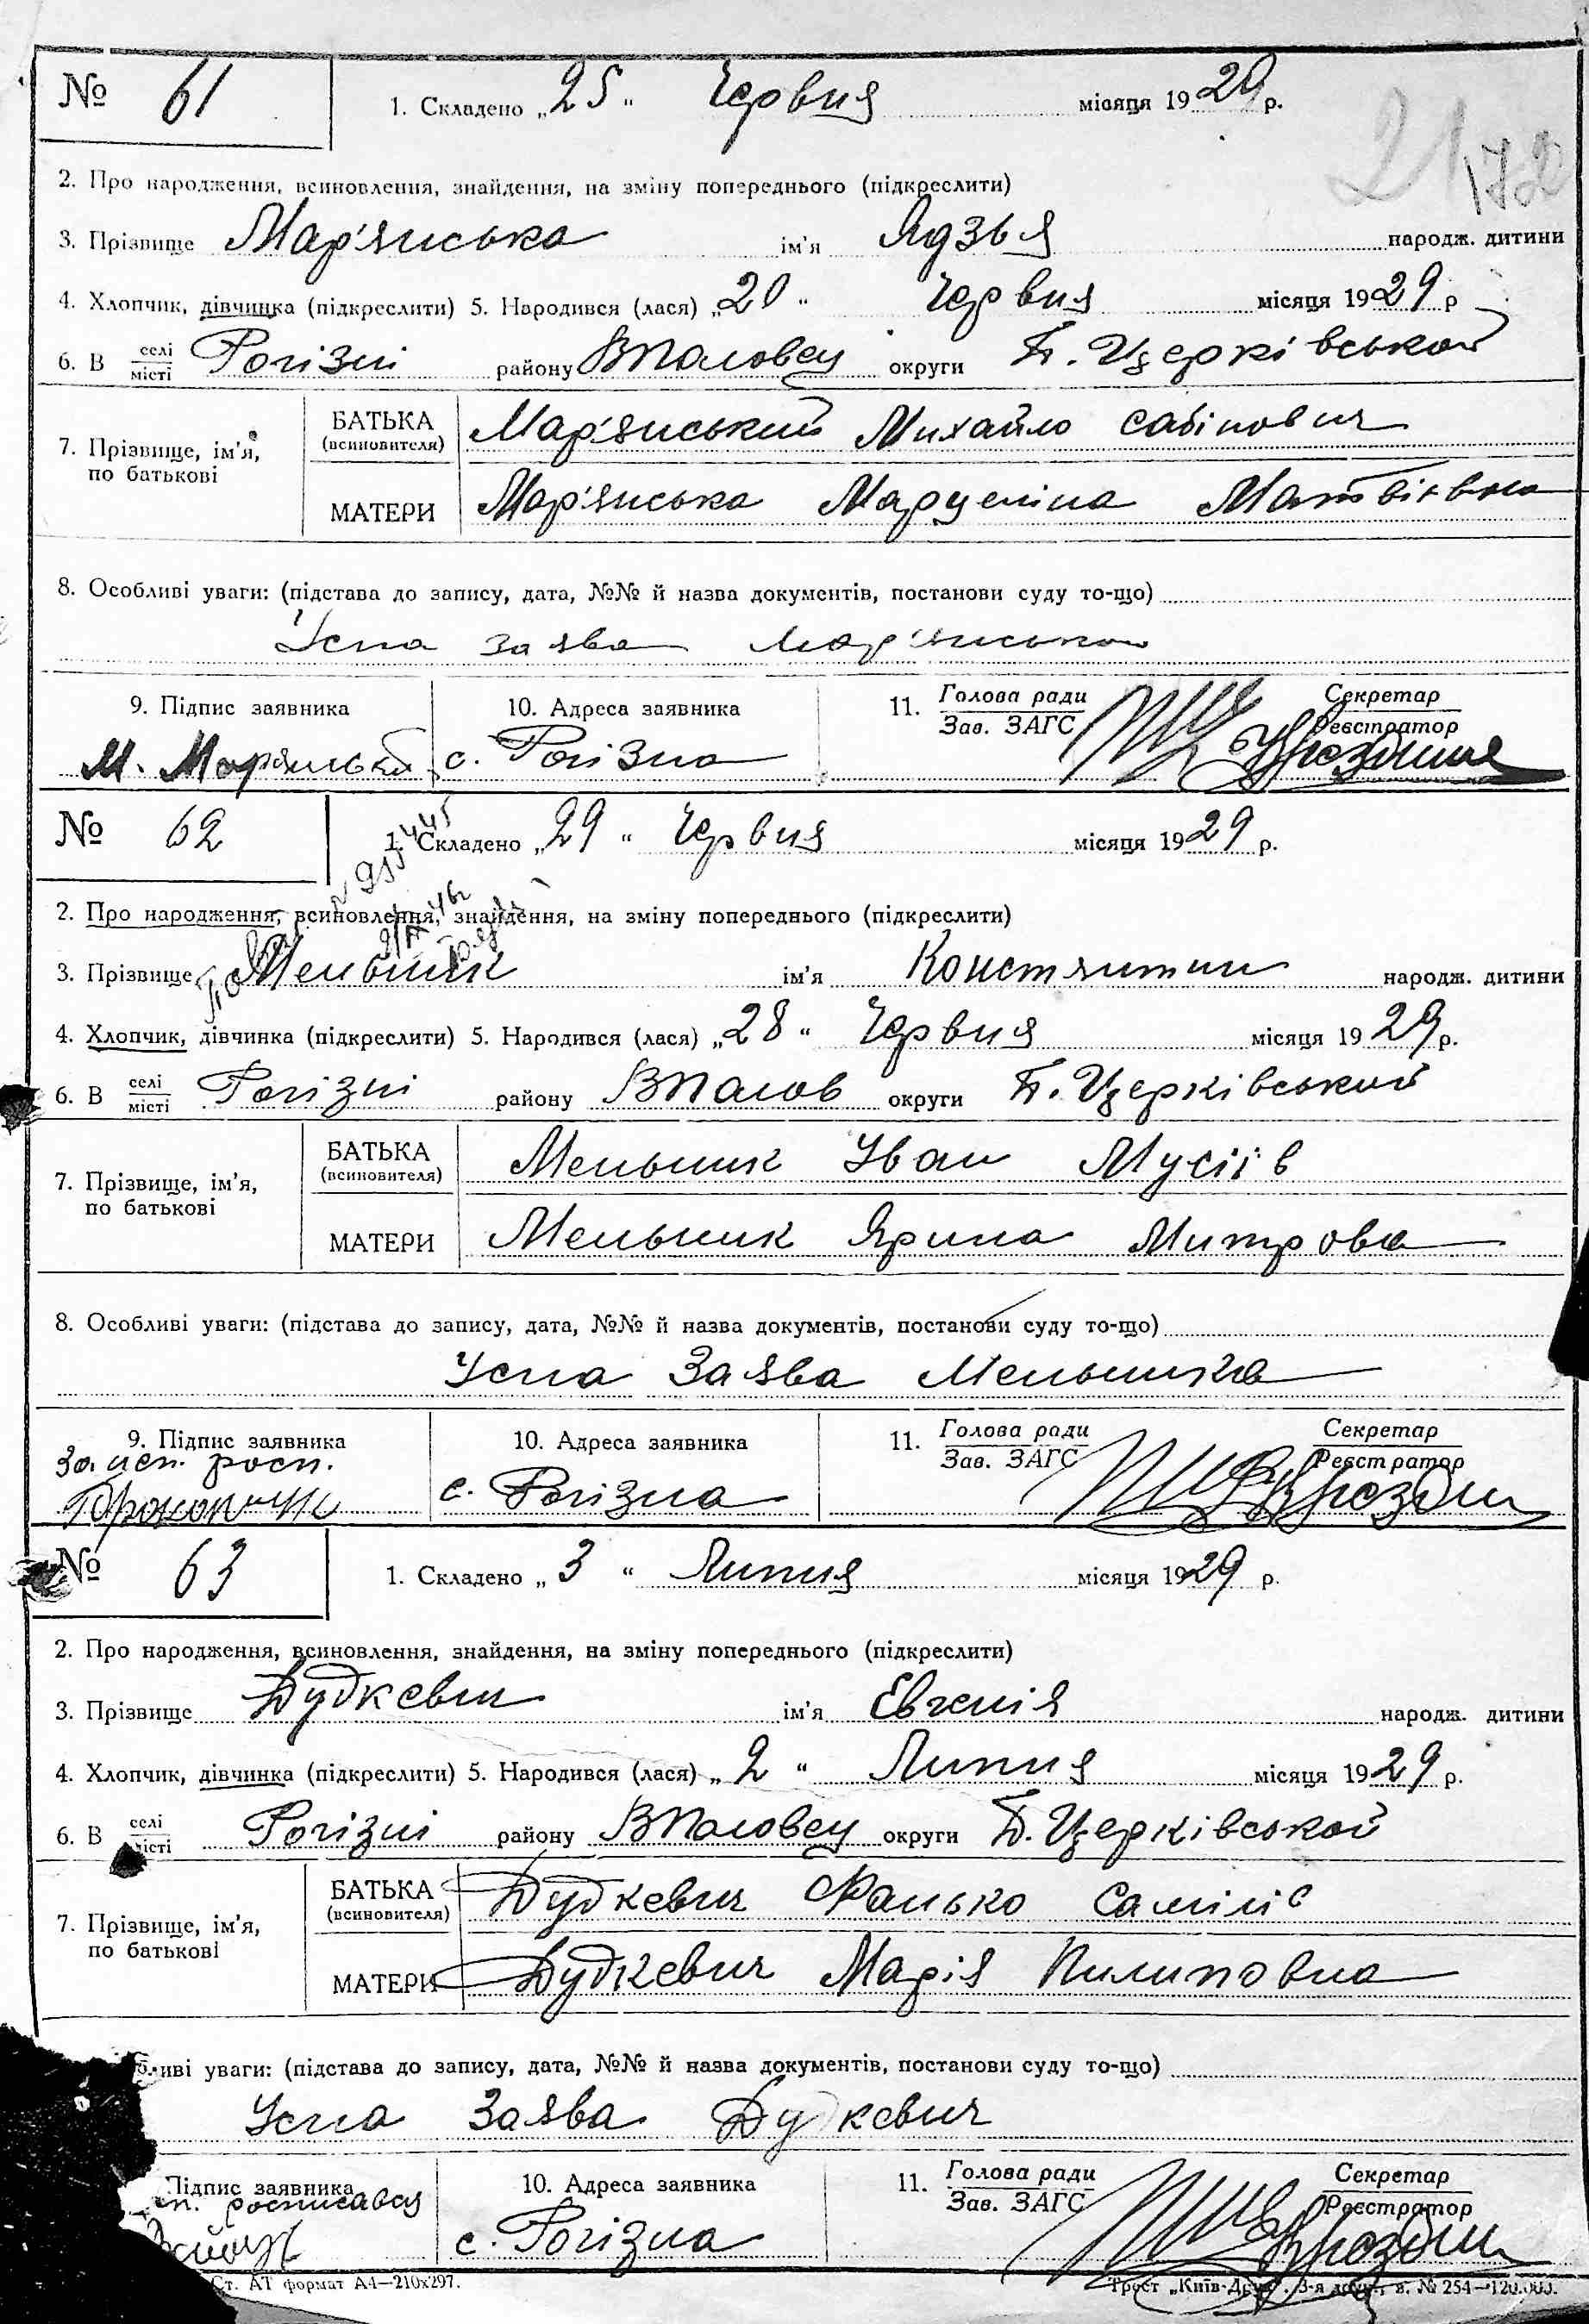 № 61
1. Складено „25“ Червня місяця 1929 р.
21 172
2. Про народження, всиновлення, знайдення, на зміну попереднього (підкреслити)
3. Прізвище Мар'янська ім'я Ядзья народж. дитини
4. Хлопчик, дівчинка (підкреслити) 5. Народився (лася) „20“ Червня місяця 1929 р
6. В селі/місті Рогізні району ВПоловец округи Б. Церківської
7. Прізвище, ім'я, по батькові
БАТЬКА (всиновителя) Мар'янський Михайло Сабінович
МАТЕРИ Мар'янська Марцеліна Матвієвна
8. Особливі уваги: (підстава до запису, дата, №№ й назва документів, постанови суду то-що)
Усна заява Мар'янської
9. Підпис заявника 10. Адреса заявника 11. Голова ради/Зав. ЗАГС Секретар/Реєстратор
М. с. Рогізна
№ 62
1. Складено „29“ Червня місяця 1929 р.
2. Про народження, всиновлення, знайдення, на зміну попереднього (підкреслити)
3. Прізвище Мельник ім'я Констянтин народж. дитини
4. Хлопчик, дівчинка (підкреслити) 5. Народився (лася) „28“ Червня місяця 1929 р.
6. В селі/місті Рогізні району ВПолов округи Б. Церківської
7. Прізвище, ім'я, по батькові
БАТЬКА (всиновителя) Мельник Іван Мусіїв
МАТЕРИ Мельник Ярина Митрова
8. Особливі уваги: (підстава до запису, дата, №№ й назва документів, постанови суду то-що)
Усна Заява Мельника
9. Підпис заявника 10. Адреса заявника 11. Голова ради/Зав. ЗАГС Секретар/Реєстратор
За неп. росп.
с. Рогізна
№ 63
1. Складено „3“ Липня місяця 1929 р.
2. Про народження, всиновлення, знайдення, на зміну попереднього (підкреслити)
3. Прізвище Дудкевич ім'я Евгенія народж. дитини
4. Хлопчик, дівчинка (підкреслити) 5. Народився (лася) „2“ Липня місяця 1929 р.
6. В селі/місті Рогізні району ВПоловец округи Б. Церківської
7. Прізвище, ім'я, по батькові
БАТЬКА (всиновителя) Дудкевич Фанько
МАТЕРИ Дудкевич Марія Пилиповна
иві уваги: (підстава до запису, дата, №№ й назва документів, постанови суду то-що)
Усна Заява Дудкевич
Підпис заявника 10. Адреса заявника 11. Голова ради/Зав. ЗАГС Секретар/Реєстратор
росписався
с. Рогізна
Ст. АТ формат А4—210х297.
Трест „Київ-Друк“. 3-я друк., з. № 254—120.000.